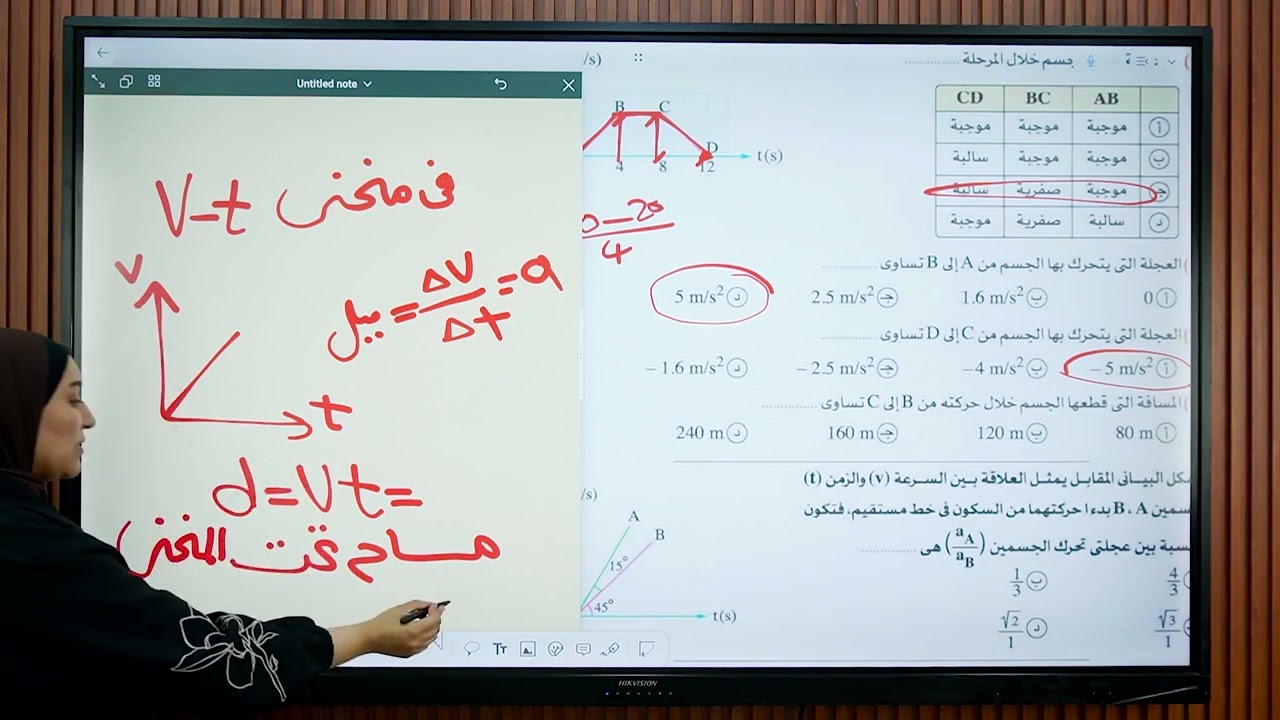 Untitled note
فى منحنى V-t
V
ميل = ΔV/Δt = a
t
d = Vt =
مساحة تحت المنحنى
/s)
جسم خلال المرحلة ..............
B C
D
4 8 12 t(s)
AB BC CD
أ موجبة موجبة موجبة
ب موجبة موجبة سالبة
جـ موجبة صفرية سالبة
د سالبة صفرية موجبة
0 – 20
4
العجلة التى يتحرك بها الجسم من A إلى B تساوى ..............
أ 0 ب 1.6 m/s² جـ 2.5 m/s² د 5 m/s²
العجلة التى يتحرك بها الجسم من C إلى D تساوى ..............
أ – 5 m/s² ب – 4 m/s² جـ – 2.5 m/s² د – 1.6 m/s²
المسافة التى قطعها الجسم خلال حركته من B إلى C تساوى ..............
أ 80 m ب 120 m جـ 160 m د 240 m
كل البيانى المقابل يمثل العلاقة بين السرعة (v) والزمن (t)
سمين B ، A بدءا حركتهما من السكون فى خط مستقيم، فتكون
سبة بين عجلتى تحرك الجسمين (aA/aB) هى ..............
4/3 ب 1/3
√3/1 د √2/1
/s)
A
B
15°
45°
t(s)
Tт
HIKVISION